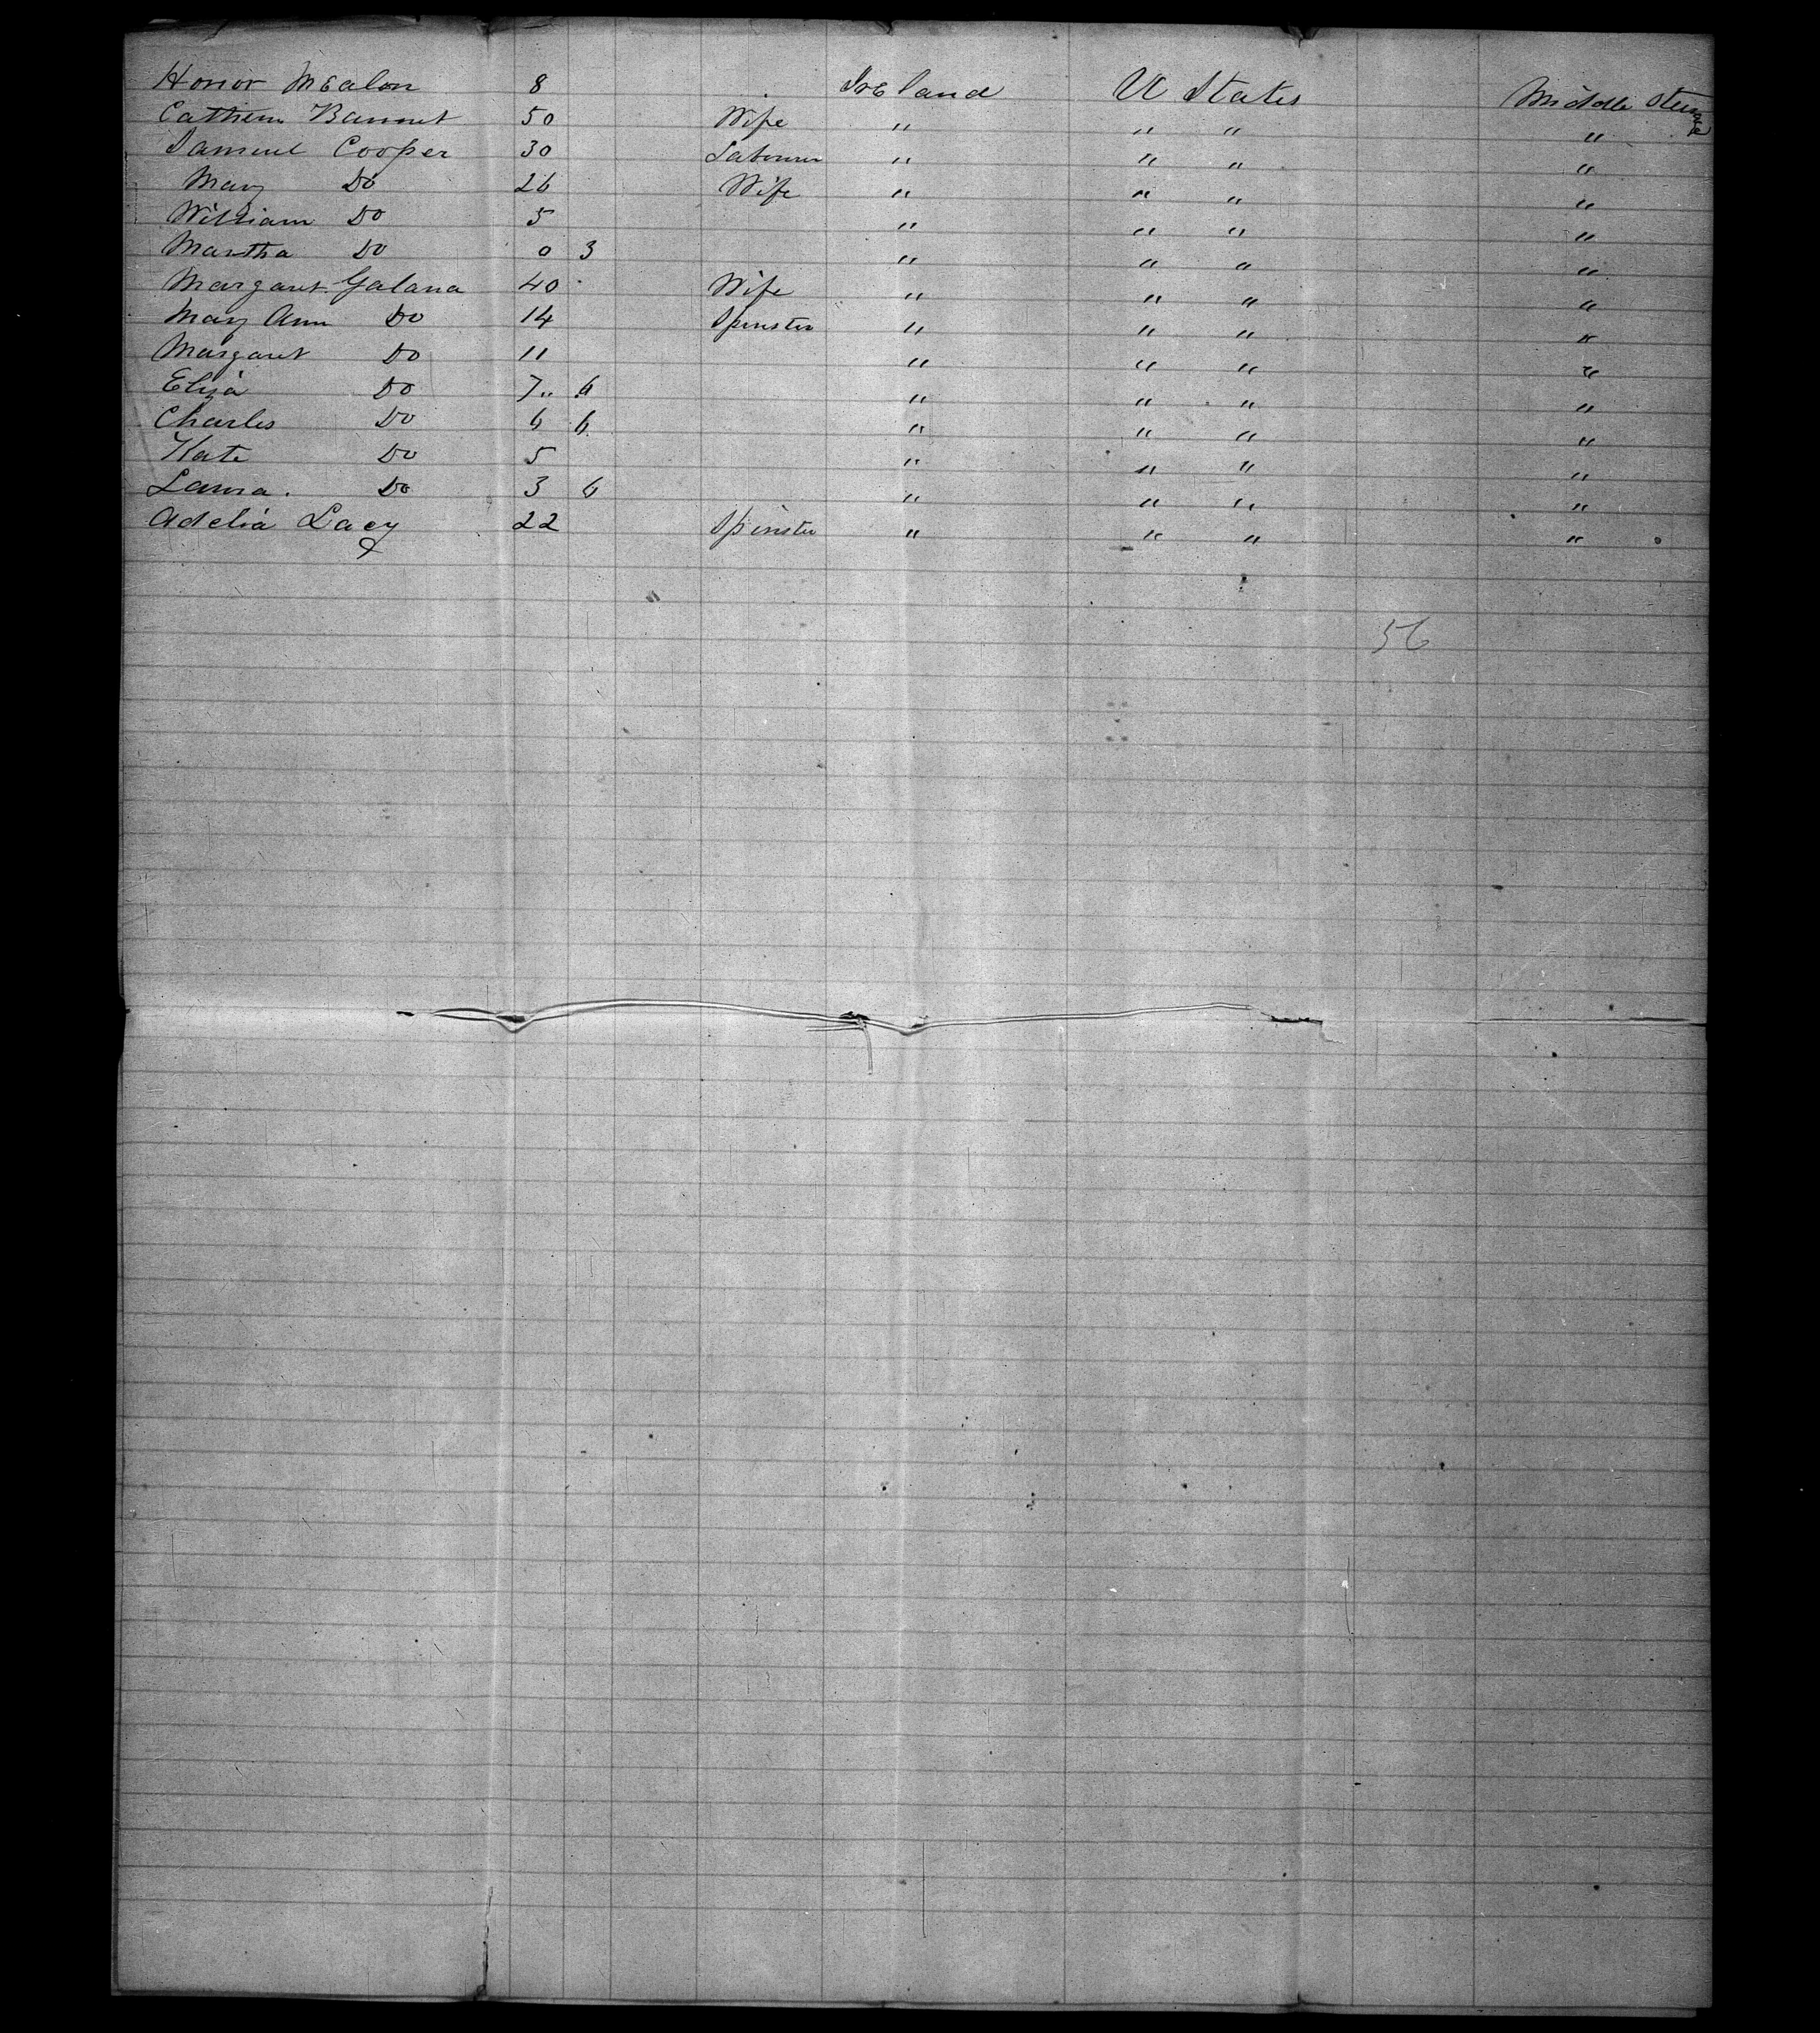 Honor McAlon 8 Ireland U States Middle Steerage
Cathern Bannet 50 Wife " " " "
Samuel Cooper 30 Labourer " " " "
Mary Do 26 Wife " " " "
William Do 5 " " " "
Martha Do 0 3 " " " "
Margaret Galana 40 Wife " " " "
Mary Ann Do 14 Spinster " " " "
Margaret Do 11 " " " "
Eliza Do 7 " 6 " " " "
Charles Do 6 6 " " " "
Kate Do 5 " " " "
Laura. Do 3 6 " " " "
Adelia Lacy 22 Spinster " " " "
56